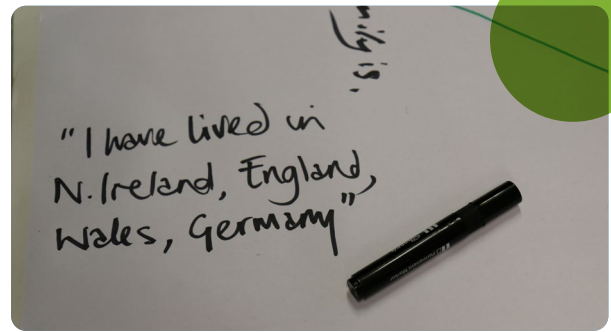 mily is.
"I have lived in
N. Ireland, England,
Wales, Germany"